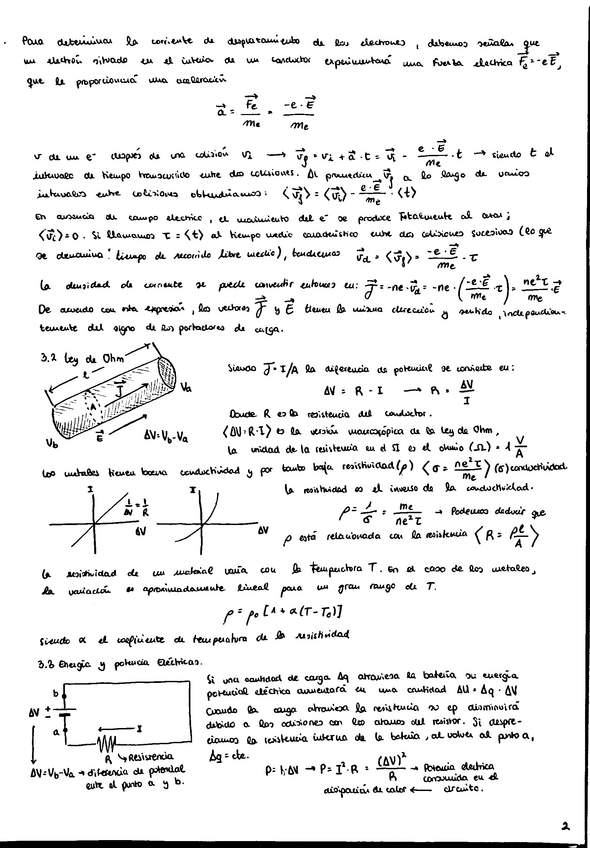 Para determinar la corriente de desplazamiento de los electrones, debemos señalar que
un electrón situado en el interior de un conductor experimentará una fuerza electrica F⃗e = -eE⃗,
que le proporcionará una aceleración
a⃗ = F⃗e/me = -e·E⃗/me
v de un e⁻ después de una colisión v⃗i → v⃗f = v⃗i + a⃗·t = v⃗i - (e·E⃗/me)·t → siendo t el
intervalo de tiempo transcurrido entre dos colisiones. Al promediar v⃗f a lo largo de varios
intervalos entre colisiones obtendríamos: ⟨v⃗f⟩ = ⟨v⃗i⟩ - (e·E⃗/me)·⟨t⟩
En ausencia de campo electrico, el movimiento del e⁻ se produce totalmente al azar;
⟨v⃗i⟩ = 0. Si llamamos τ = ⟨t⟩ al tiempo medio característico entre dos colisiones sucesivas (lo que
se denomina: tiempo de recorrido libre medio), tendremos v⃗d = ⟨v⃗f⟩ = (-e·E⃗/me)·τ
La densidad de corriente se puede convertir entonces en: J⃗ = -ne·v⃗d = -ne·(-e·E⃗/me · τ) = (ne²τ/me)·E⃗
De acuerdo con esta expresión, los vectores J⃗ y E⃗ tienen la misma dirección y sentido, independien-
temente del signo de los portadores de carga.
3.2 Ley de Ohm
l
A
J⃗
Va
Vb
E⃗
ΔV = Vb-Va
Siendo J = I/A la diferencia de potencial se convierte en:
ΔV = R·I → R = ΔV/I
Donde R es la resistencia del conductor.
⟨ΔV=R·I⟩ es la versión macroscópica de la ley de Ohm,
la unidad de la resistencia en el SI es el ohmio (Ω) = 1 V/A
Los metales tienen buena conductividad y por tanto baja resistividad (ρ) ⟨σ = ne²τ/me⟩ (σ) conductividad
I
1/ΔV = 1/R
ΔV
I
ΔV
la resistividad es el inverso de la conductividad.
ρ = 1/σ = me/ne²τ → Podemos deducir que
ρ está relacionada con la resistencia ⟨R = ρl/A⟩
la resistividad de un material varía con la temperatura T. En el caso de los metales,
la variación es aproximadamente lineal para un gran rango de T.
ρ = ρ₀ [1 + α(T-T₀)]
siendo α el coeficiente de temperatura de la resistividad
3.3 Energía y potencia Eléctricas.
b
ΔV
+
-
a
I
R → Resistencia
ΔV = Vb-Va → diferencia de potencial
entre el punto a y b.
Si una cantidad de carga Δq atraviesa la batería su energía
potencial eléctrica aumentará en una cantidad ΔU = Δq · ΔV
Cuando la carga atraviesa la resistencia su ep disminuirá
debido a las colisiones con los atomos del resistor. Si despre-
ciamos la resistencia interna de la batería, al volver al punto a,
Δq = cte.
P = I·ΔV → P = I²·R = (ΔV)²/R → Potencia electrica
consumida en el
disipación de calor ← circuito.
2